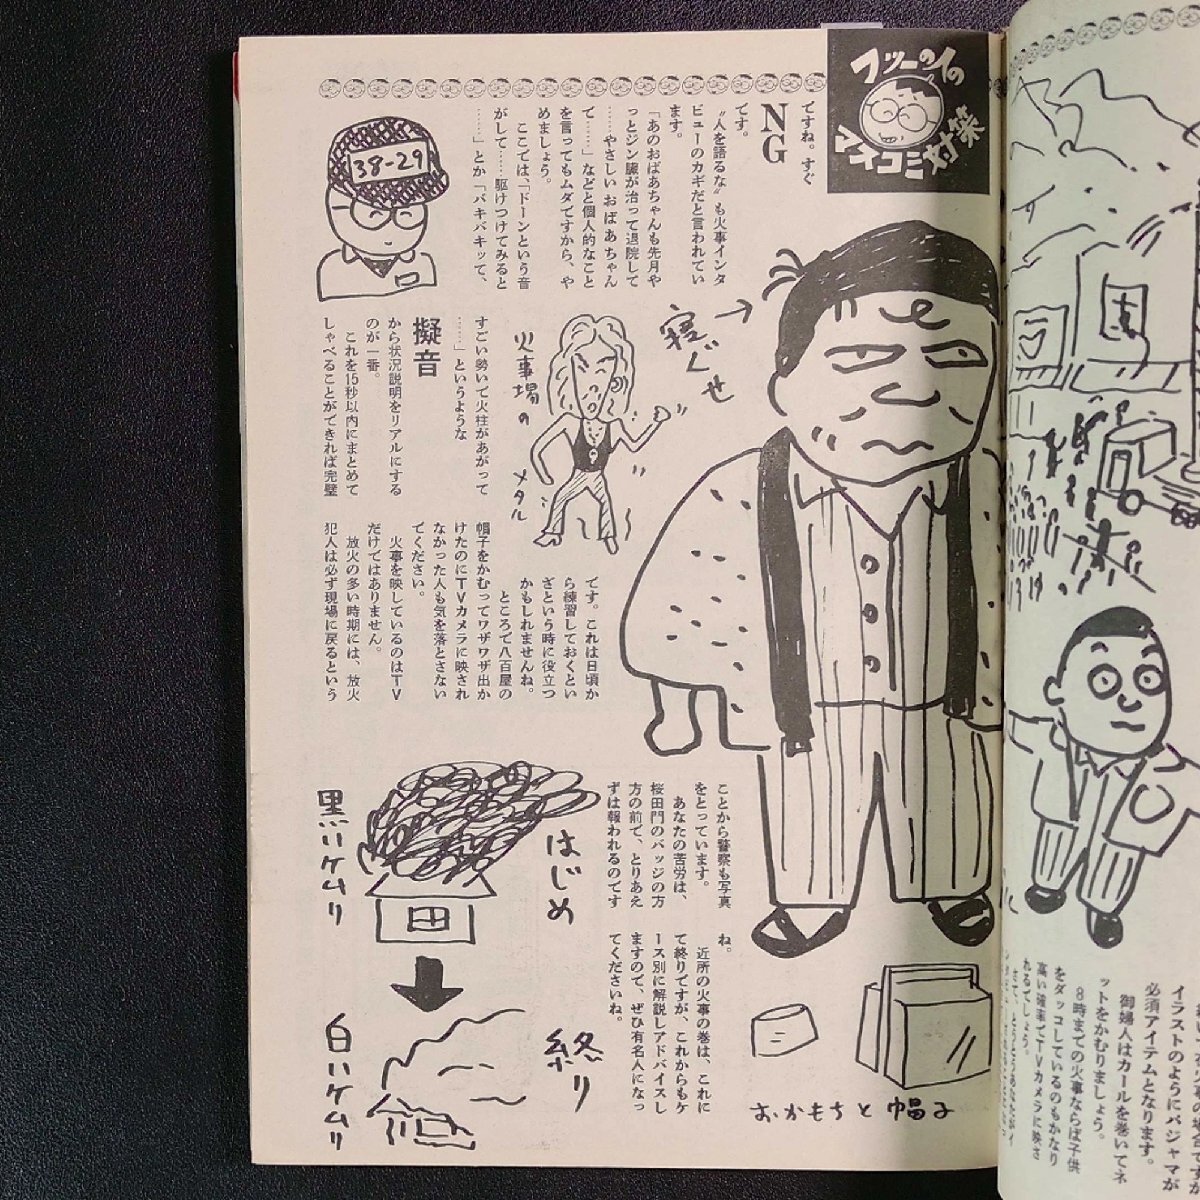 フツーの人の
マスコミ対策
ですね。すぐ
NG
です。
〝人を語るな〟も火事インタ
ビューのカギだと言われてい
ます。
「あのおばあちゃんも先月や
っとジン臓が治って退院して
……やさしいおばあちゃん
で……」などと個人的なこと
を言ってもムダですから、や
めましょう。
ここでは、「ドーンという音
がして……駆けつけてみると
……」とか「バキバキッて、
すごい勢いで火柱があがって
……」というような
擬音
から状況説明をリアルにする
のが一番。
これを15秒以内にまとめて
しゃべることができれば完璧
です。これは日頃か
ら練習しておくとい
ざという時に役立つ
かもしれませんね。
ところで八百屋の
帽子をかむってワザワザ出か
けたのにTVカメラに映され
なかった人も気を落とさない
でください。
火事を映しているのはTV
だけではありません。
放火の多い時期には、放火
犯人は必ず現場に戻るという
ことから警察も写真
をとっています。
あなたの苦労は、
桜田門のバッジの方
方の前で、とりあえ
ずは報われるのです
ね。
近所の火事の巻は、これに
て終りですが、これからもケ
ース別に解説しアドバイスし
ますので、ぜひ有名人になっ
てくださいね。
38-29
寝ぐせ
火事場の
メタル
はじめ
黒いケムリ
終り
白いケムリ
おかもちと帽子
イラストのようにパジャマが
必須アイテムとなります。
御婦人はカールを巻いてネ
ットをかむりましょう。
8時までの火事ならば子供
をダッコしているのもかなり
高い確率でTVカメラに映さ
れるでしょう。